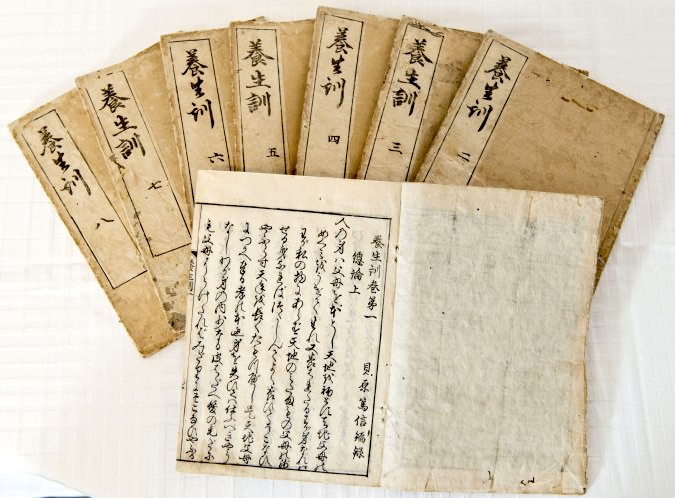 養生訓 二
養生訓 三
養生訓 四
養生訓 五
養生訓 六
養生訓 七
養生訓 八
養生訓巻第一
總論上
貝原篤信編録
人の身ハ父母を本とし天地を初とす天地父母の
めぐミをうけて生れ又養はれたるわが身なれバ
わが私の物にあらず天地のミたまもの父母の残
せる身なれバつゝしんでよく養ひてそこなひ
やぶらず天年を長くたもつべし是天地父母
につかへ奉る孝の本也身を失ひてハ仕ふべきやう
なしわが身の内少なる皮はだへ髪の毛だに
も父母にうけたれバミだりにそこなひやぶる